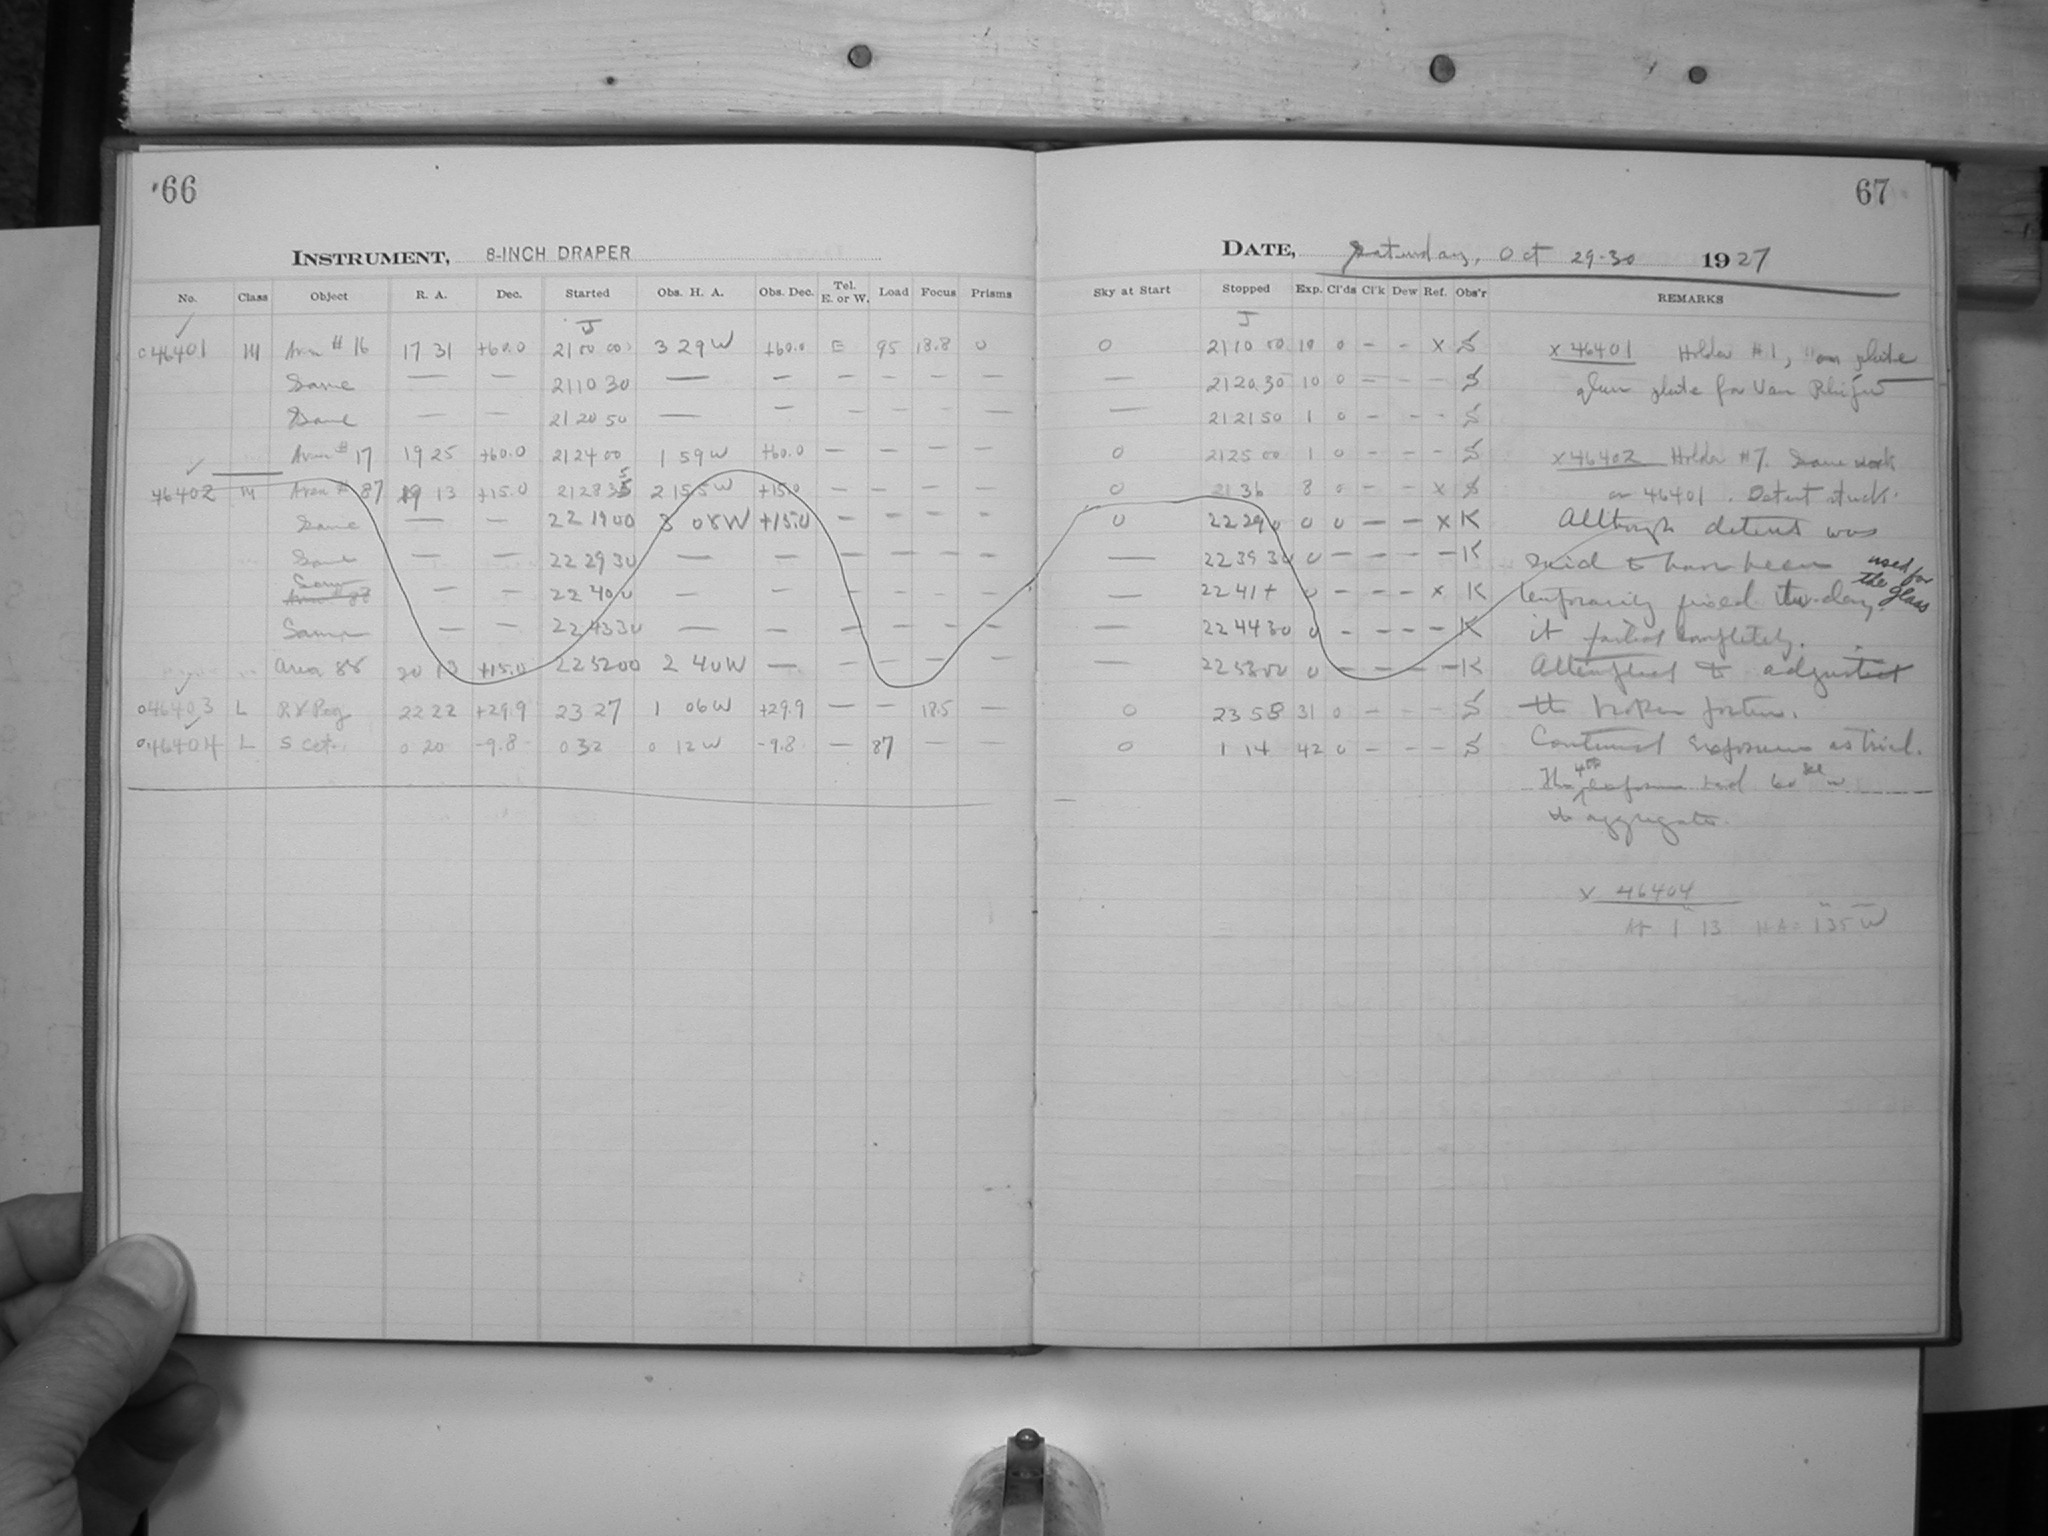 66
INSTRUMENT, 8-INCH DRAPER
No. Class Object R. A. Dec. Started Obs. H. A. Obs. Dec. Tel. E. or W. Load Focus Prisms
J
46401 M Area # 16 17 31 +60.0 21 00 00 3 29 W +60.0 E 95 18.8 0
Same — — 21 10 30 — — — — — —
Same — — 21 20 50 — — — — — —
Area # 17 19 25 +60.0 21 24 00 1 59 W +60.0 — — — —
46402 M Area # 87 19 13 +15.0 21 28 35 2 15 W +15.0 — — — —
Same — — 22 19 00 3 08 W +15.0 — — — —
Same — — 22 29 30 — — — — — —
Same — — 22 40 0 — — — — — —
Same — — 22 43 30 — — — — — —
Area 88 20 13 +15.0 22 52 00 2 40 W — — — — —
46403 L RV Peg 22 22 +29.9 23 27 1 06 W +29.9 — — 18.5 —
46404 L S Cet. 0 20 -9.8 0 32 0 12 W -9.8 — 87 — —
67
DATE, Saturday, Oct 29-30 1927
Sky at Start Stopped Exp. Cl'ds Cl'k Dew Ref. Obs'r REMARKS
J
0 21 10 00 10 0 — — x S x 46401 Holder #1, plate
— 21 20 30 10 0 — — — S glass plate for Van Rhijn
— 21 21 50 1 0 — — — S
0 21 25 00 1 0 — — — S x 46402 Holder #7. Same work
0 21 36 8 0 — — x S as 46401. Detent stuck.
0 22 29 0 0 0 — — x K Although detent was
— 22 39 30 0 — — — — K said to have been used for
— 22 41 + 0 — — — x K temporarily fixed to-day, the glass
— 22 44 30 0 — — — — K it failed completely.
— 22 53 00 0 — — — — K Attempted to adjust
0 23 58 31 0 — — — S the broken
0 1 14 42 0 — — — S Continued exposures as trial.
The 4th exposure had 60 sec in
the aggregate.
x 46404
At 1 13 H A = 1 35 W